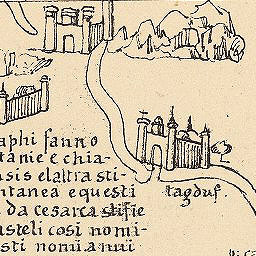 aphi fanno
tanie e chia-
nsis el altra sti-
ntanea e questi
da cesarea stifie
asteli cosi nomi-
sti nomi anni
tagduf